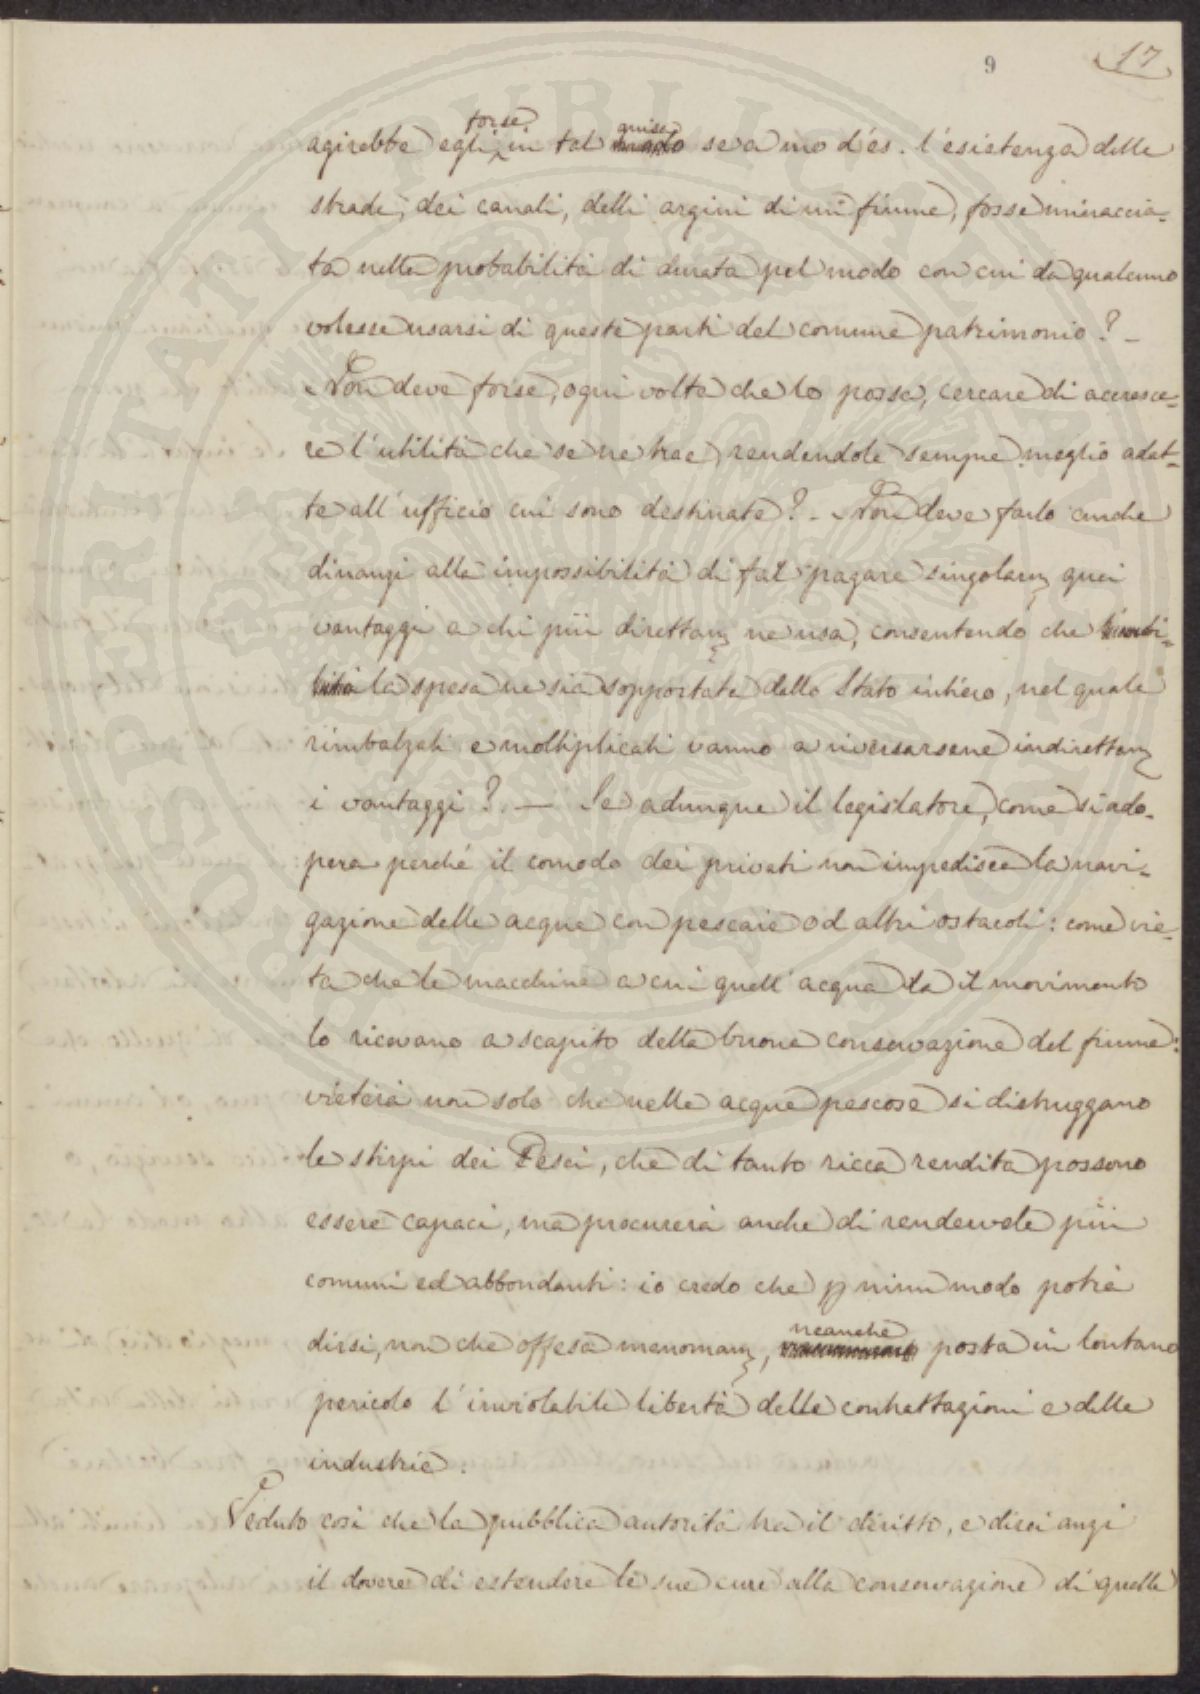 9
17
agirebbe egli forse in tal guisa se a mo d'es. l'esistenza delle
strade, dei canali, delli argini di un fiume, fosse minaccia-
ta nella probabilità di durata pel modo con cui da qualcuno
volesse usarsi di queste parti del comune patrimonio? -
Non deve forse, ogni volta che lo possa, cercare di accresce-
re l'utilità che se ne trae, rendendole sempre meglio adat-
te all'ufficio cui sono destinate? - Non deve farlo anche
dinanzi alla impossibilità di far pagare singolarm quei
vantaggi a chi più direttam ne usa, consentendo che
la spesa ne sia sopportata dallo Stato intiero, nel quale
rimbalzati e moltiplicati vanno a riversarsene indirettam
i vantaggi? — Se adunque il legislatore, come si ado-
pera perché il comodo dei privati non impedisca la navi-
gazione delle acque con pescaie od altri ostacoli: come vie-
ta che le macchine a cui quell'acqua dà il movimento
lo ricevano a scapito della buona conservazione del fiume:
vieterà non solo che nelle acque pescose si distruggano
le stirpi dei Pesci, che di tanto ricca rendita possono
essere capaci, ma procurerà anche di rendervele più
comuni ed abbondanti: io credo che p niun modo potrà
dirsi, non che offesa menomam, neanche posta in lontano
pericolo l'inviolabile libertà delle contrattazioni e delle
industrie.
Veduto così che la pubblica autorità ha il diritto, e direi anzi
il dovere di estendere le sue cure alla conservazione di quelle